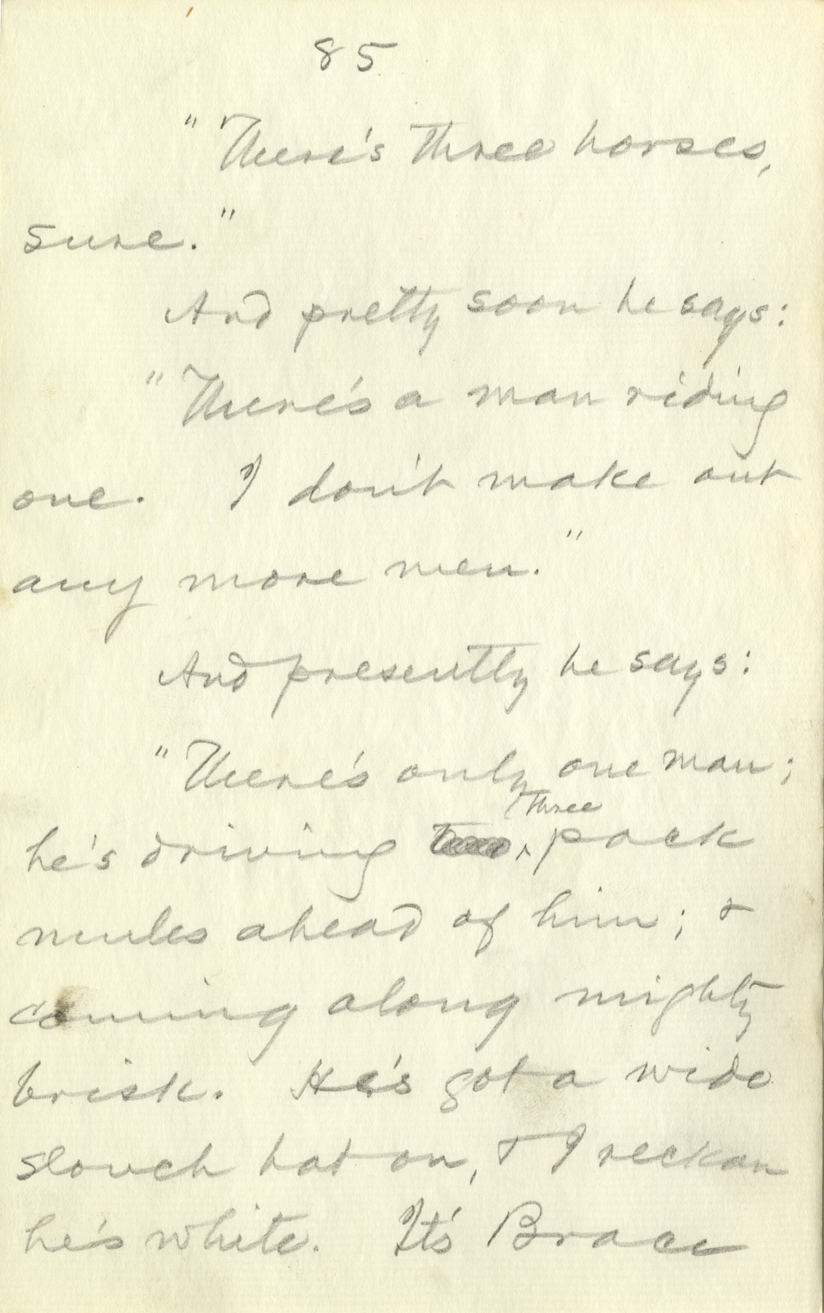 85
"There's three horses,
sure."
And pretty soon he says:
"There's a man riding
one. I don't make out
any more men."
And presently he says:
"There's only one man;
three
he's driving two pack
mules ahead of him; &
coming along mighty
brisk. He's got a wide
slouch hat on, & I reckon
he's white. It's Brace